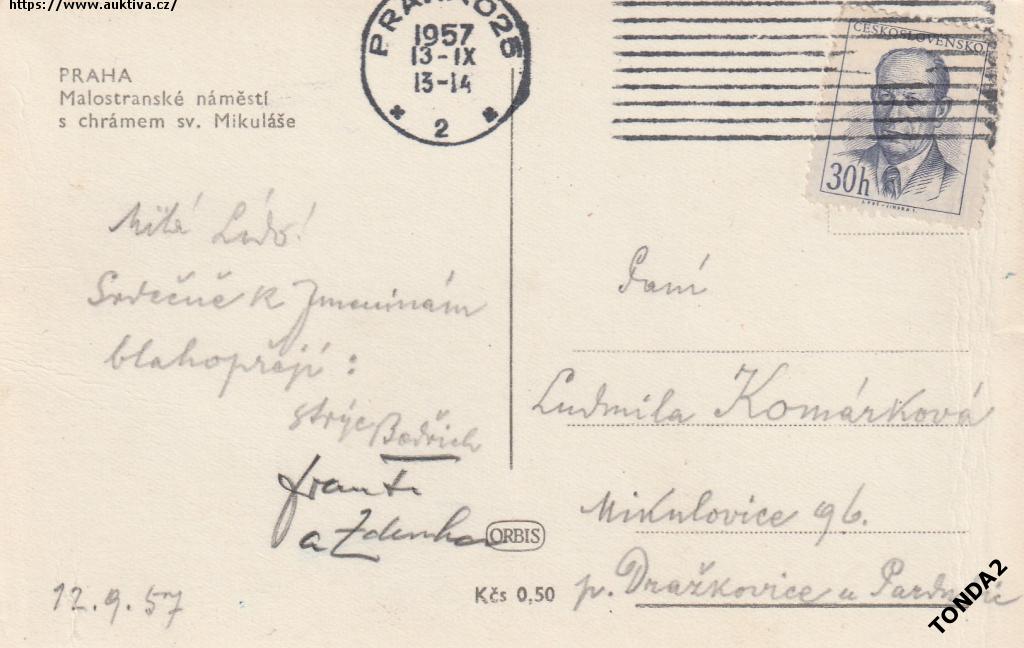 https://www.auktiva.cz/
PRAHA
Malostranské náměstí
s chrámem sv. Mikuláše
PRAHA 025
1957
13-IX
13-14
2
ČESKOSLOVENSKO
30h
Milá Lído!
Srdečně k Jmeninám
blahopřejí:
strýc Bedřich
Franta
a Zdenka
12.9.57
ORBIS
Kčs 0,50
Paní
Ludmila Komárková
Mikulovice 96.
p. Dražkovice u Pardubic
TONDA2